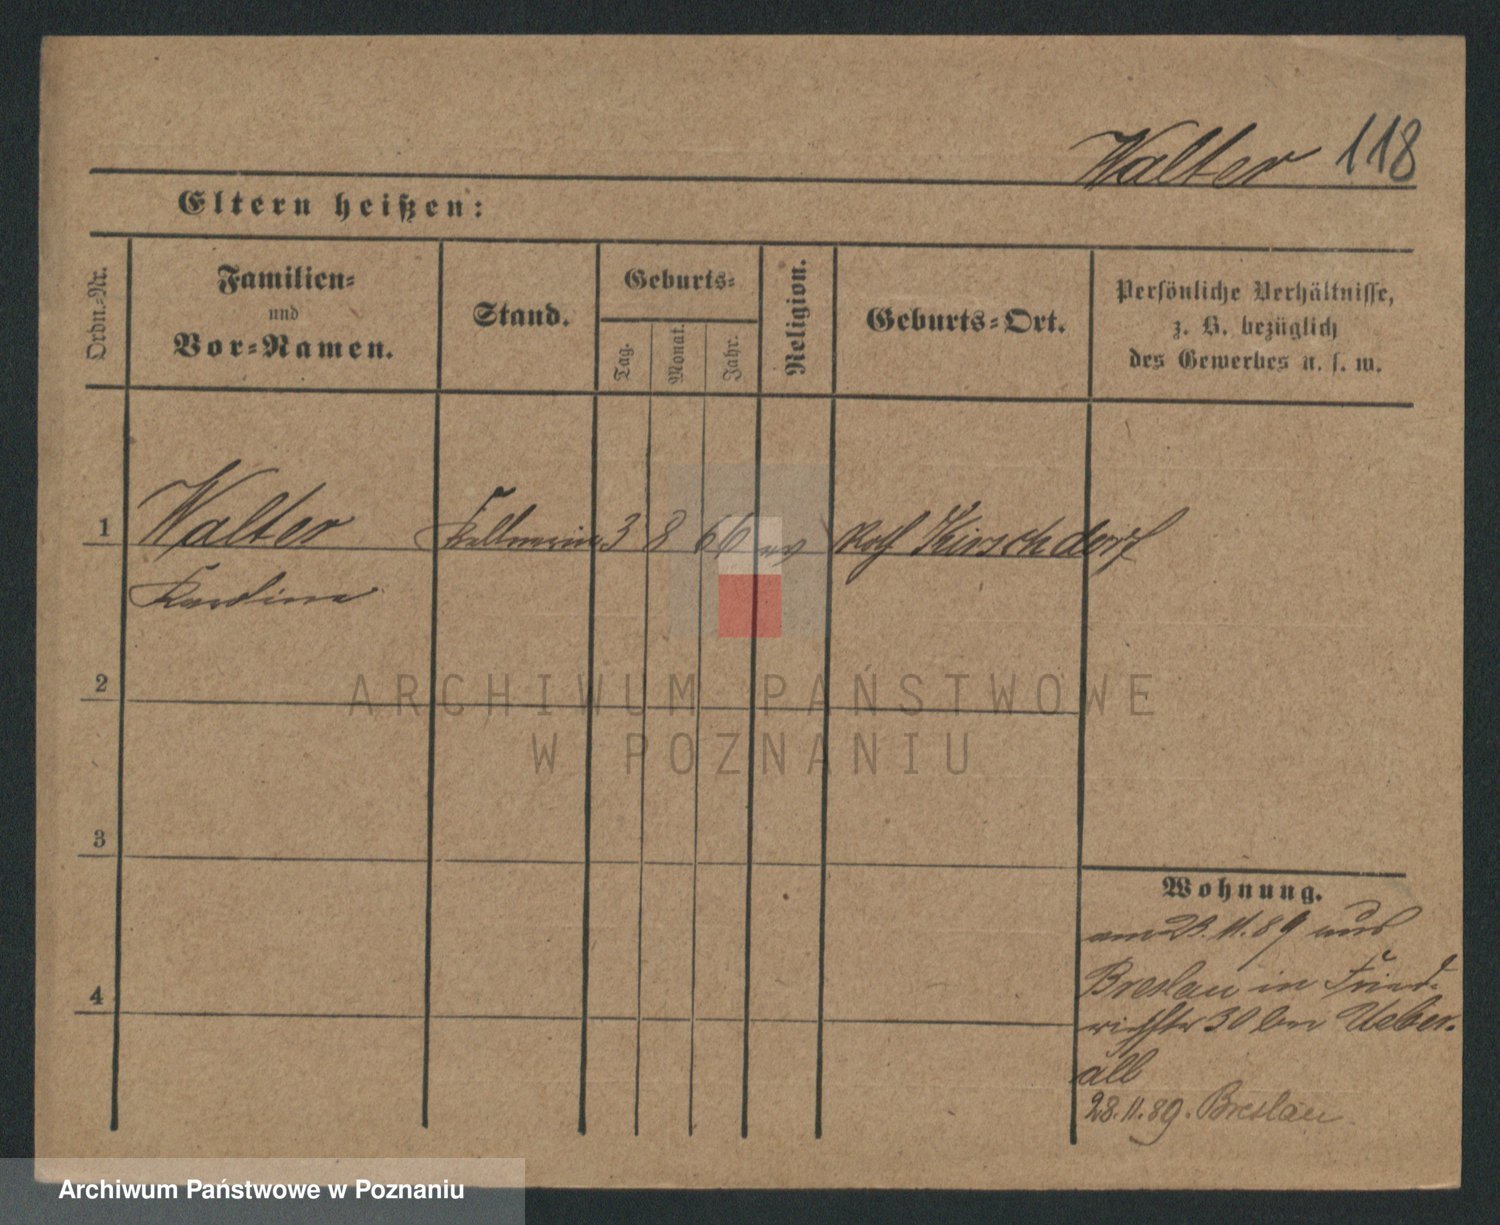 Walter 118
Eltern heißen:
Ordn.-Nr.
Familien-
und
Vor-Namen.
Stand.
Geburts-
Tag.
Monat.
Jahr.
Religion.
Geburts-Ort.
Persönliche Verhältnisse,
z. B. bezüglich
des Gewerbes u. s. w.
1 Walter Kellnerin 3 8 66 ev Kirschdorf
2
ARCHIWUM PAŃSTWOWE
W POZNANIU
3
Wohnung.
am 23.11.89 aus
Breslau in Fried-
richstr 30 bei Ueber-
all
4
28.11.89. Breslau
Archiwum Państwowe w Poznaniu